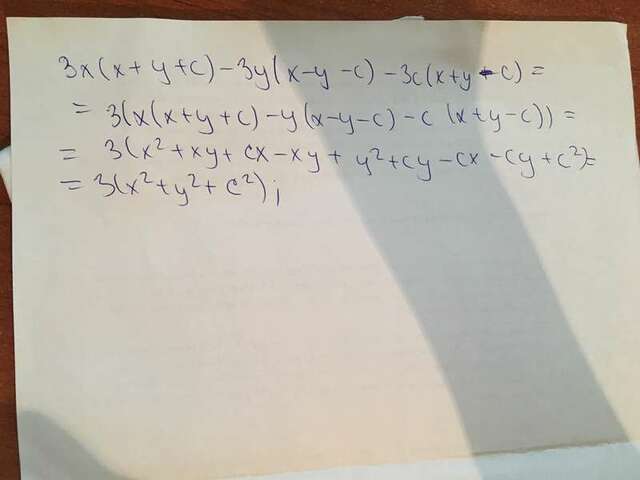 3x(x+y+c)-3y(x-y-c)-3c(x+y-c)=
=3(x(x+y+c)-y(x-y-c)-c(x+y-c))=
=3(x²+xy+cx-xy+y²+cy-cx-cy+c²)=
=3(x²+y²+c²);